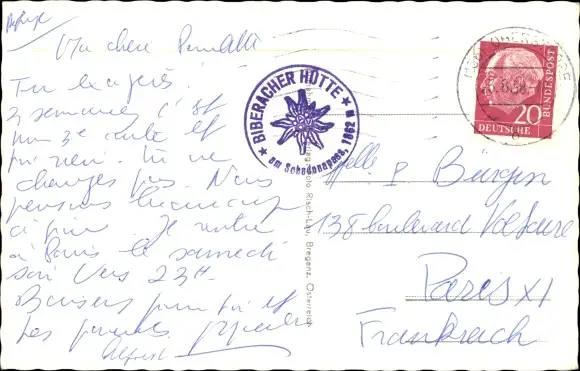 Ma chère
Tu exagères!
3 semaines c'est
ma 3e carte et
pas rien. Tu ne
changes pas. Nous
pensons beaucoup
à
Je rentre
à Paris le samedi
soir vers 23H
Baisers pour toi et
tes parents
BIBERACHER HÜTTE
am Schadonapass, 1862 m
Risch-Lau, Bregenz, Österreich
20
DEUTSCHE
BUNDESPOST
Melle
138 boulevard Voltaire
Paris XI
Frankreich